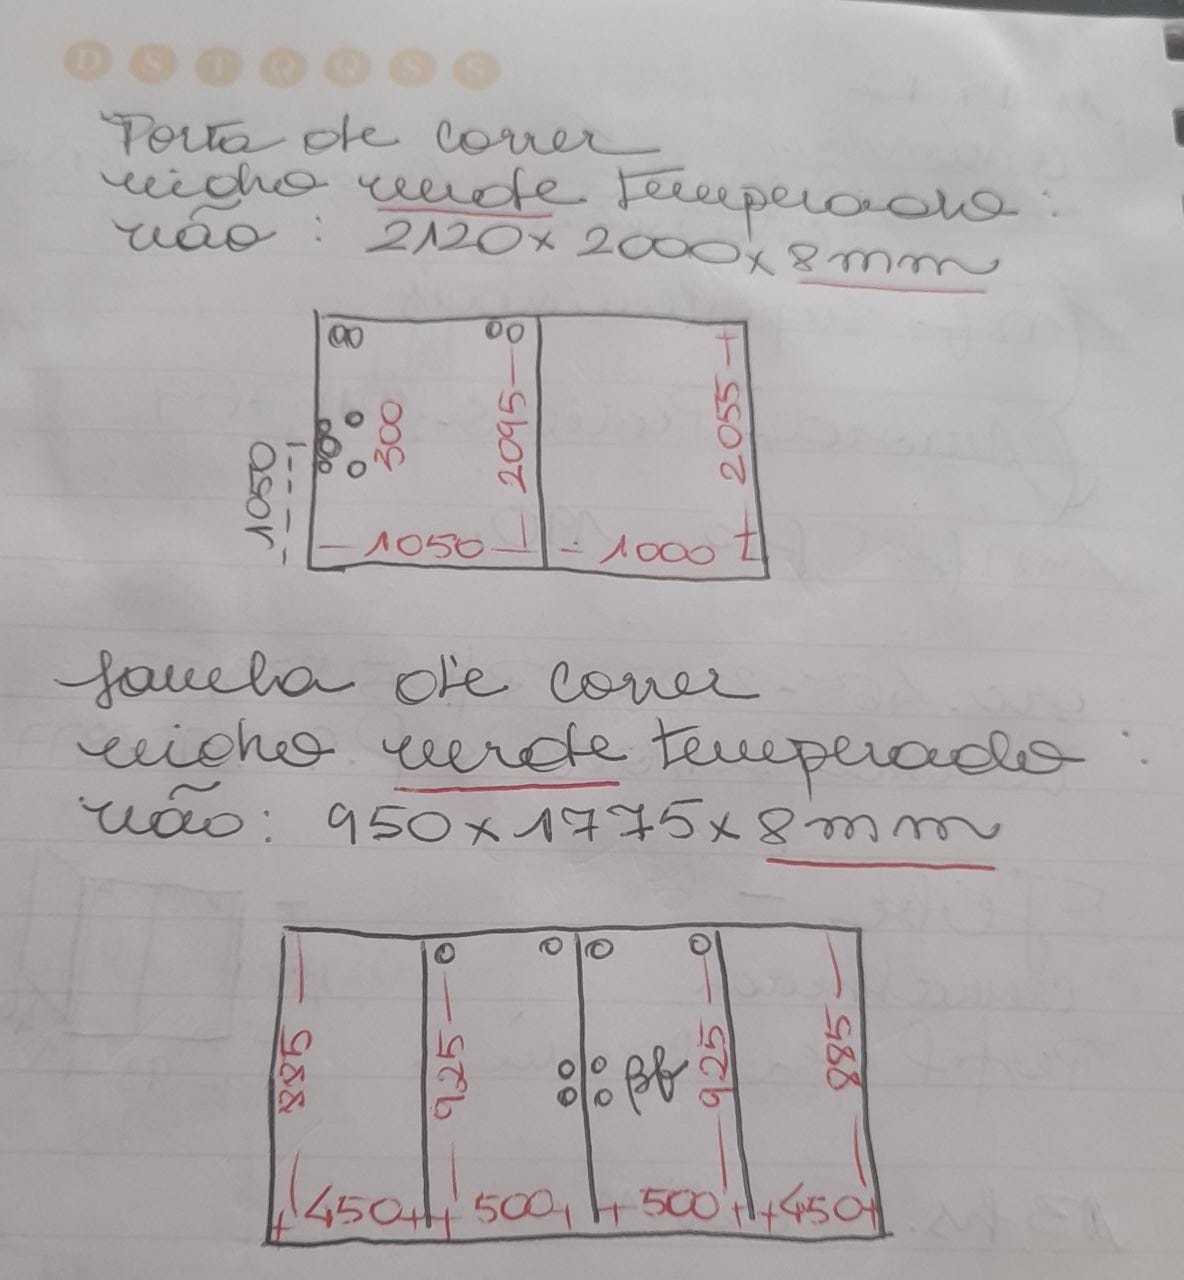 D S T Q Q S S
Porta de correr
vidro verde Temperado :
vão : 2120 x 2000 x 8mm
300
2095
2055
1050
1050
1000
Janela de correr
vidro verde temperado :
vão : 950 x 1775 x 8mm
885
925
925
885
450
500
500
450